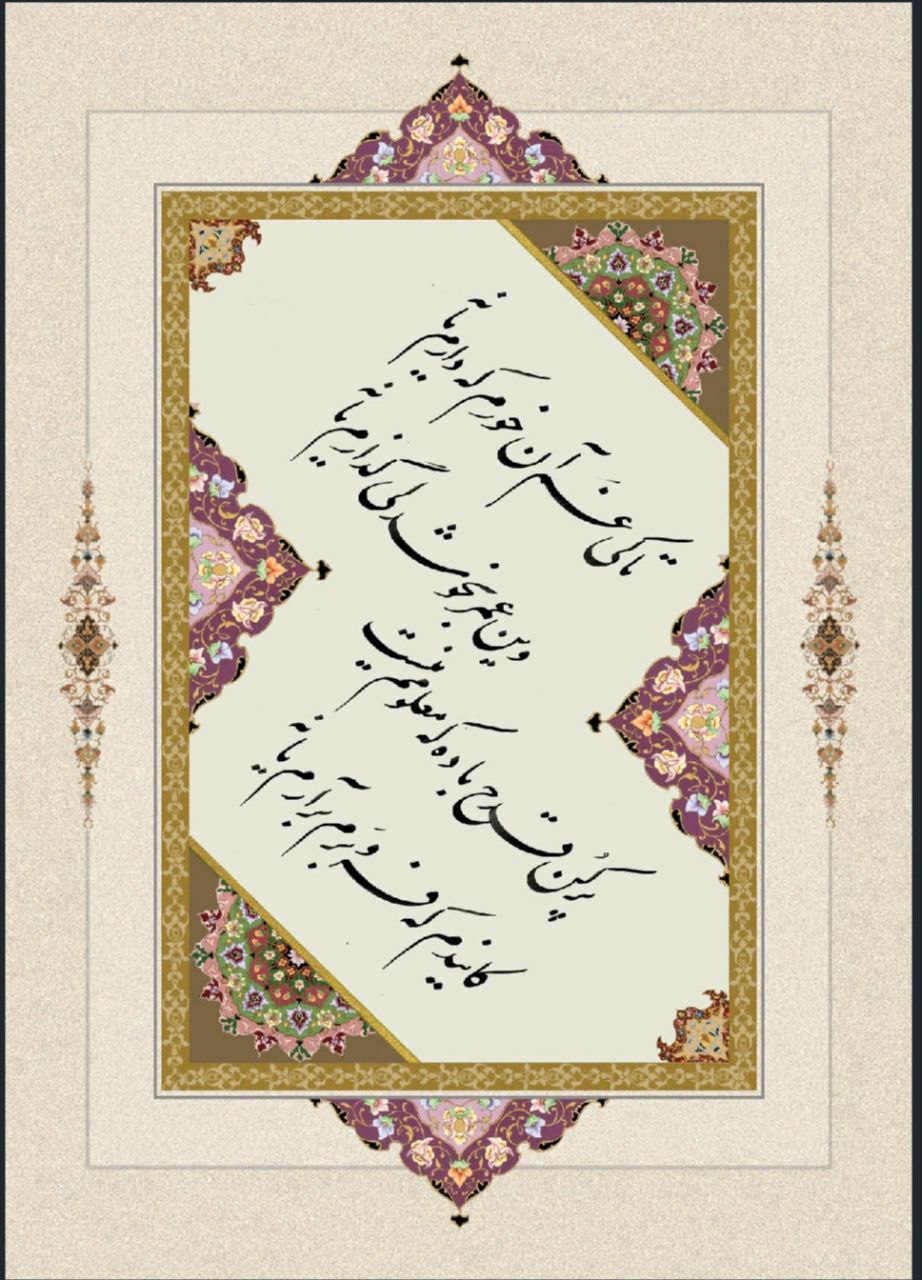 تا کی غم آن خورم که دارم یا نه
وین عمر بخوشدلی گذارم یا نه
پر کن قدح باده که معلومم نیست
کایندم که فرو برم برآرم یا نه